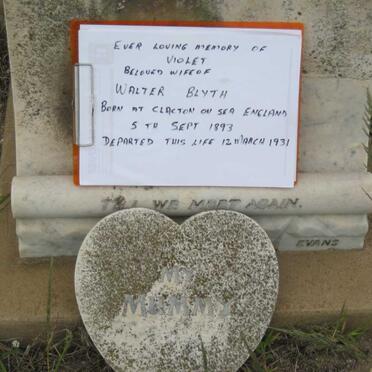 EVER LOVING MEMORY OF
VIOLET
BELOVED WIFE OF
WALTER BLYTH
BORN AT CLACTON ON SEA ENGLAND
5 TH SEPT 1893
DEPARTED THIS LIFE 12 MARCH 1931
TILL WE MEET AGAIN.
EVANS
MY
MUMMY